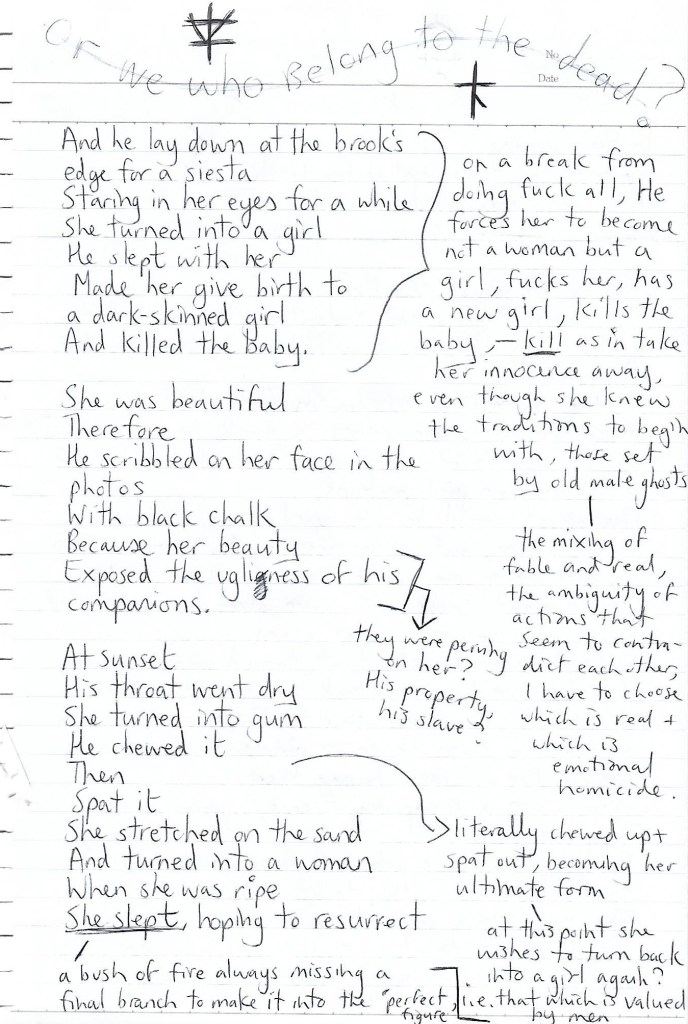 Or we who Belong to the dead?
No.
Date
And he lay down at the brook's
edge for a siesta
Staring in her eyes for a while
She turned into a girl
He slept with her
Made her give birth to
a dark-skinned girl
And killed the baby.
She was beautiful
Therefore
He scribbled on her face in the
photos
With black chalk
Because her beauty
Exposed the ugliness of his
companions.
At sunset
His throat went dry
She turned into gum
He chewed it
Then
Spat it
She stretched on the sand
And turned into a woman
When she was ripe
She slept, hoping to resurrect
a bush of fire always missing a
final branch to make it into the "perfect,
figure
on a break from
doing fuck all, He
forces her to become
not a woman but a
girl, fucks her, has
a new girl, kills the
baby, - kill as in take
her innocence away,
even though she knew
the traditions to begin
with, those set
by old male ghosts
the mixing of
fable and real,
the ambiguity of
actions that
seem to contra-
dict each other,
I have to choose
which is real +
which is
emotional
homicide.
they were perving
on her?
His property,
his slave?
literally chewed up +
spat out, becoming her
ultimate form
at this point she
wishes to turn back
into a girl again?
i.e. that which is valued
by men